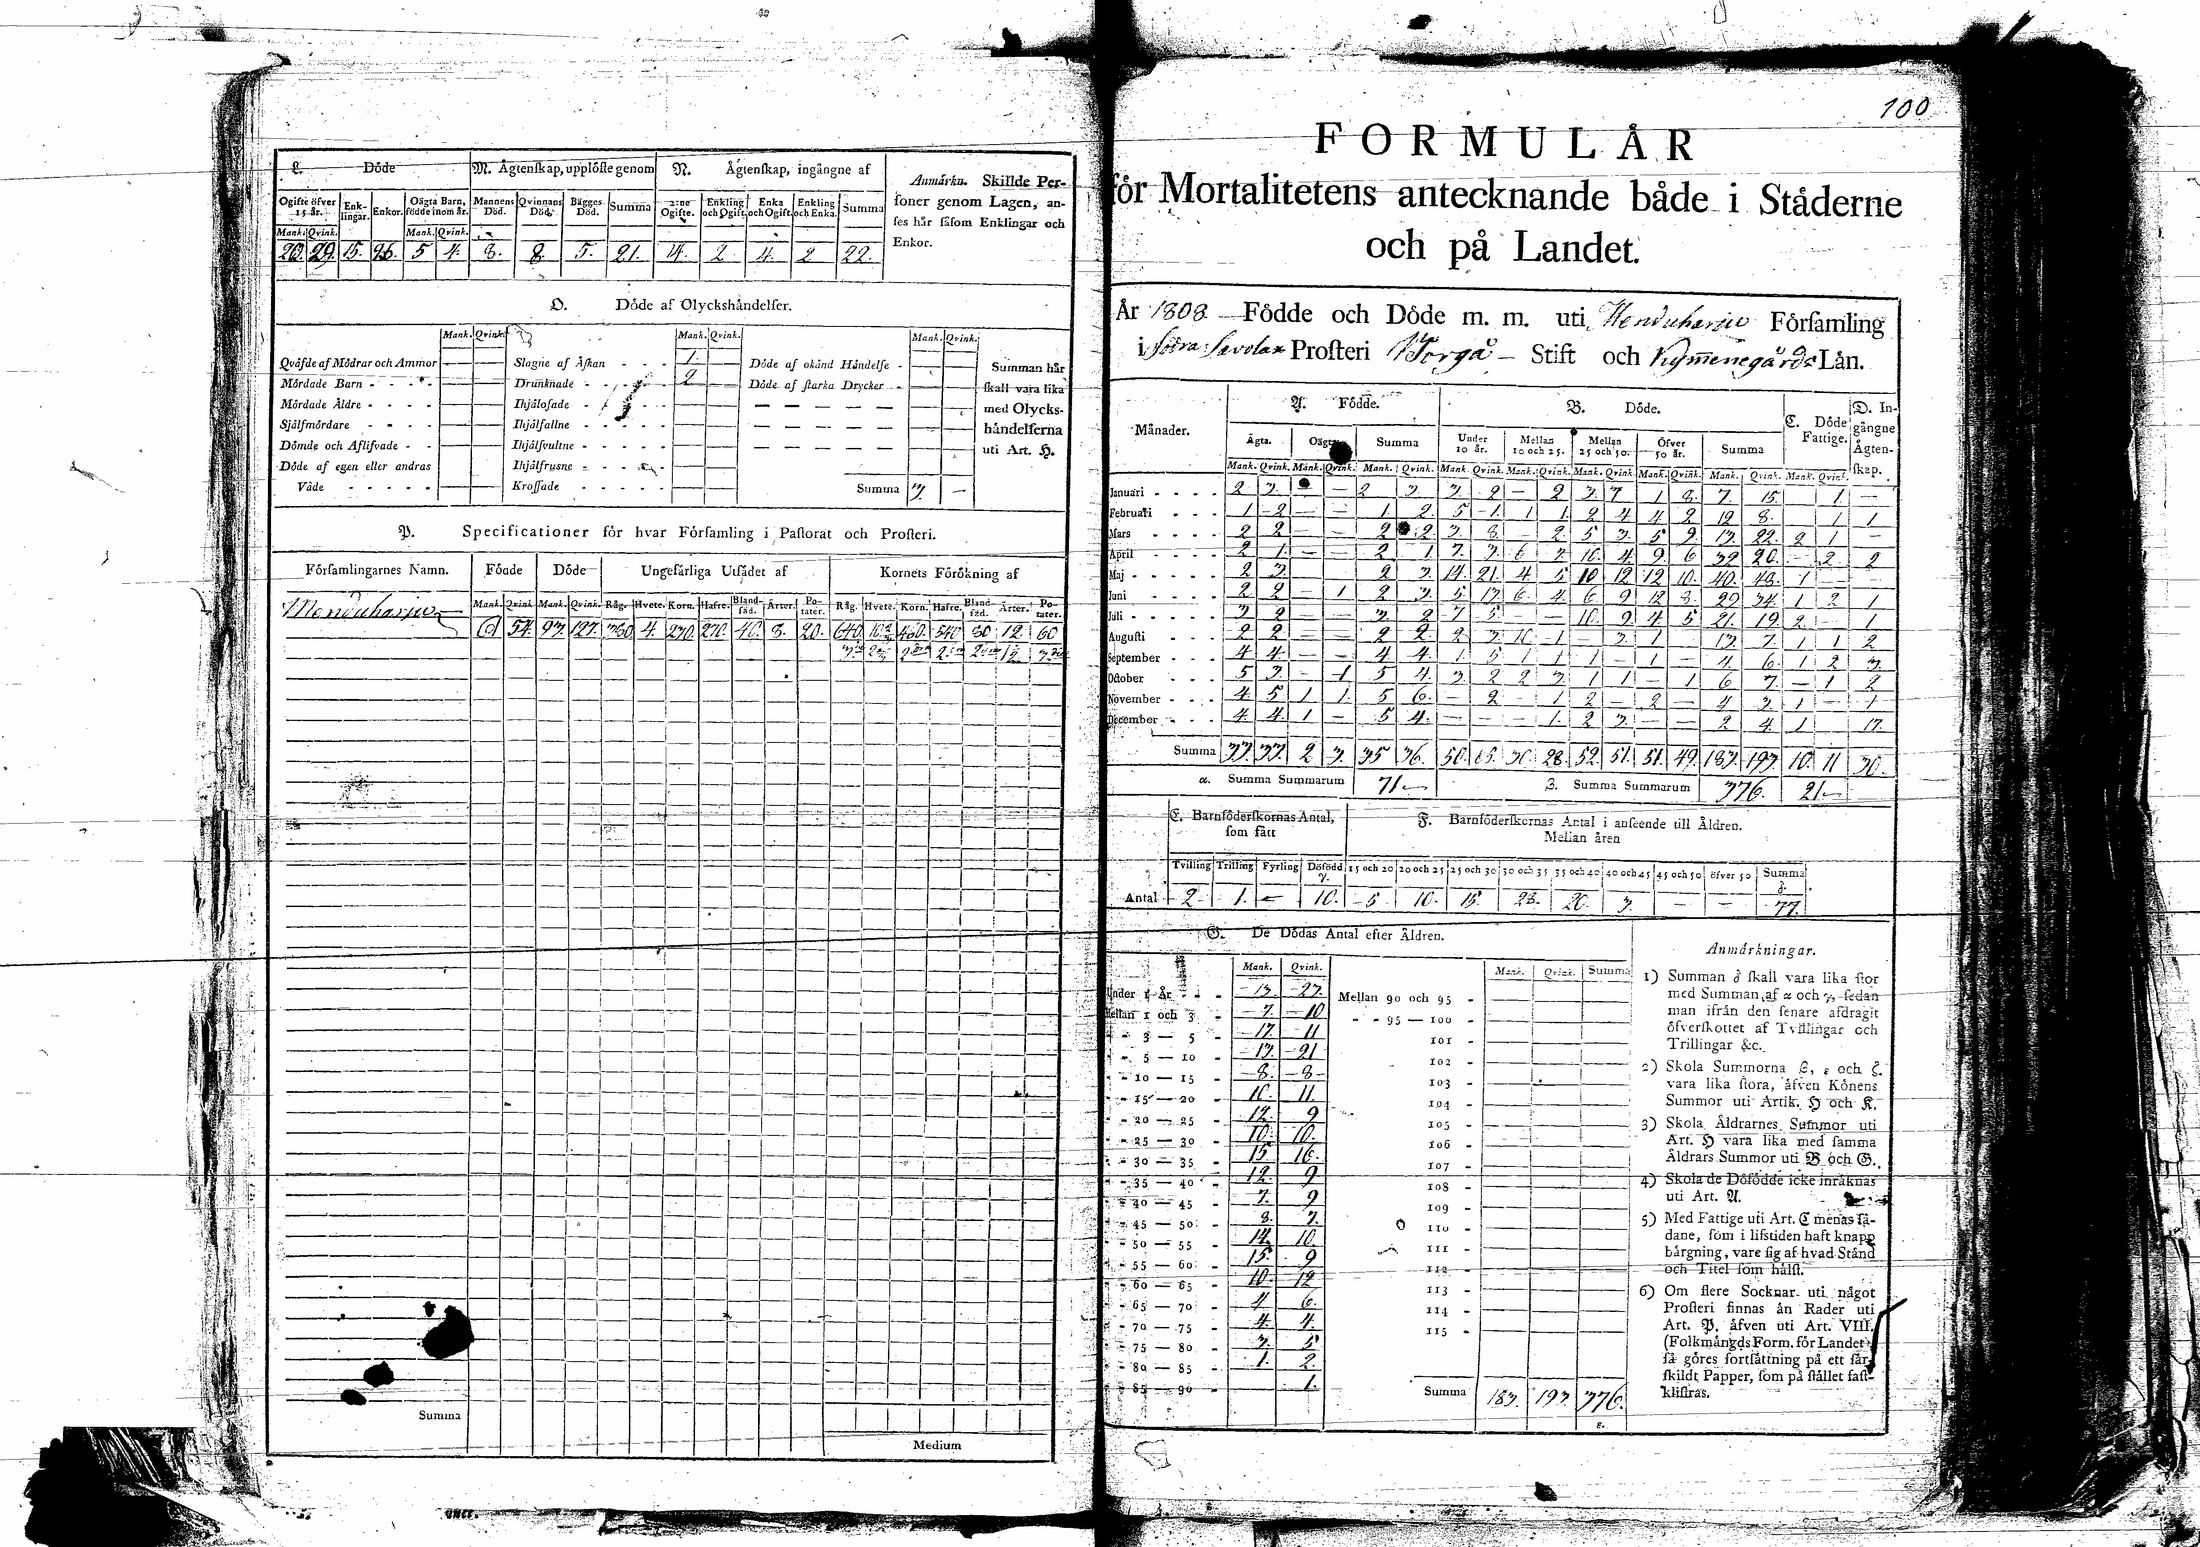 L. Döde
M. Ägtenſkap, upplöſte genom
N. Ägtenſkap, ingångne af
Anmärkn. Skillde Per-
ſoner genom Lagen, an-
ſes här ſåſom Enklingar och
Enkor.
Ogifte öfver 15 år. Enk-lingar. Enkor. Oägta Barn, födde inom år. Mannens Död. Qvinnans Död. Bägges Död. Summa 2:ne Ogifte. Enkling och Ogift. Enka och Ogift. Enkling och Enka. Summa
Mank. Qvink. Mank. Qvink.
29. 15. 26. 5 4. 8. 8 5. 21. 14. 2 4. 2 22.
O. Döde af Olyckshändelſer.
Mank. Qvink. Mank. Qvink. Mank. Qvink.
Qväfde af Mödrar och Ammor Slagne af Åſkan - - - 1. Döde af okänd Händelſe -
Mördade Barn - - - - Drunknade - - - - 2 Döde af ſtarka Drycker -
Mördade Äldre - - - - Ihjälofade - - - -
Självmördare - - - - Ihjälfallne - - - -
Dömde och Aflifvade - - Ihjälfvultne - - - -
Döde af egen eller andras Ihjälfrusne - - - -
Våde - - - - - Kroſſade - - - - - Summa 3. —
Summan här
ſkall vara lika
med Olycks-
händelſerna
uti Art. H.
P. Specificationer för hvar Förſamling i Paſtorat och Proſteri.
Förſamlingarnes Namn. Födde Döde Ungefärliga Utſädet af Kornets Förökning af
Mank. Qvink. Mank. Qvink. Råg. Hvete. Korn. Hafre. Bland-ſäd. Ärter. Po-tater. Råg. Hvete. Korn. Hafre. Bland-ſäd. Ärter. Po-tater.
Menduharju 54. 93. 127. 4. 270. 270. 40. 8. 20. 640. 540 80 12. 60
Summa
Medium
100
FORMULÄR
för Mortalitetens antecknande både i Städerne
och på Landet.
År 1808 Födde och Döde m. m. uti Menduharju Förſamling
i Södra Savolax Proſteri Borgå Stift och Kymmenegårds Län.
Månader. A. Födde. B. Döde. C. Döde Fattige. D. In-gångne Ägten-ſkap.
Ägta. Oägta Summa Under 10 år. Mellan 10 och 25. Mellan 25 och 50. Öfver 50 år. Summa
Mank. Qvink. Mank. Qvink. Mank. Qvink. Mank. Qvink. Mank. Qvink. Mank. Qvink. Mank. Qvink. Mank. Qvink. Mank. Qvink.
Januari - - - - 2 3. — 2 3. 3. 2 — 2 3. 7 1 8. 7. 15. 1. —
Februari - - - - 1 2 — — 1 2 5 1. 1 1. 2 4 4 2 12 8. 1 1
Mars - - - - 2 2 — — 2 2 3. 8. — 2 5 3. 5 9. 13. 22. 2 1 —
April - - - - 2 1. — — 2 1. 7. 7. 6 3. 10. 4. 9 6 32 20. — 2. 2
Maj - - - - - 2 3. 2 3. 14. 21. 4 5 10 12 12 10. 40. 48. 1 — —
Juni - - - - 2 2 — 1 2 3. 5 13. 6. 4. 6 9 12 8. 29 34. 1 2 1
Juli - - - - 3. 2 — — 3. 2 7 5 — — 10. 9 4 5 21. 19 2 — 1
Auguſti - - - 2 2 — — 2 2. 2 3. 10. 1 3. 1 13. 7. 1 1 2
September - - - 4 4 — — 4 4. 1 5 1 1 1 — 1 — 4. 6. 1 2 3.
October - - - 5 3. — 1 5 4. 3. 2 2 3. 1 1 — 1 6 7. — 1 2
November - - - 4. 5 1 1. 5 6. — 2 — 1 2 — 2 — 4 3. 1 — 1
December - - - 4. 4. 1 — 5 4. — — — 1. 2 3. — — 2 4. 1 17.
Summa 33. 33. 2 3. 35 36. 50. 65. 30. 28. 52. 51. 51. 49. 183. 193. 10. 11 30.
α. Summa Summarum 71 β. Summa Summarum 376. 21
E. Barnföderſkornas Antal, ſom fått
F. Barnföderſkornas Antal i anſeende till Åldren.
Mellan åren
Tvilling Trilling Fyrling Dödfödd γ. 15 och 20 20 och 25 25 och 30 30 och 35 35 och 40 40 och 45 45 och 50 öfver 50 Summa δ.
Antal 2 1. — 10. 5 10. 15. 23. 20. 3. — — 77.
G. De Dödas Antal efter Åldren.
Mank. Qvink. Mank. Qvink. Summa
Under 1 År - - - 13. 27. Mellan 90 och 95 -
Mellan 1 och 3 - 7. 10 - - 95 — 100 -
3 — 5 - 17. 11 101 -
5 — 10 - 13. 21 102 -
10 — 15 - 8. 8 103 -
15 — 20 - 10. 11. 104 -
20 — 25 - 12. 9 105 -
25 — 30 - 10. 10. 106 -
30 — 35 - 15. 16. 107 -
35 — 40 - 12. 9 108 -
40 — 45 - 7. 9 109 -
45 — 50 - 8. 7. 110 -
50 — 55 - 14. 10. 111 -
55 — 60 - 15. 9 112 -
60 — 65 - 10. 12 113 -
65 — 70 - 4 6. 114 -
70 — 75 - 4. 4. 115 -
75 — 80 - 3. 5
80 — 85 - 1. 2.
85 — 90 - 1.
Summa 183. 193. 376.
ε.
Anmärkningar.
1) Summan δ ſkall vara lika ſtor
med Summan af α och γ, ſedan
man ifrån den ſenare afdragit
öfverſkottet af Tvillingar och
Trillingar &c.
2) Skola Summorna β, ε och ζ.
vara lika ſtora, äfven Könens
Summor uti Artik. H och K.
3) Skola Åldrarnes Summor uti
Art. H vara lika med ſamma
Åldrars Summor uti B och G.
4) Skola de Dödfödde icke inräknas
uti Art. A.
5) Med Fattige uti Art. C menas ſå-
dane, ſom i lifstiden haft knapp
bärgning, vare ſig af hvad Stånd
och Titel ſom hälſt.
6) Om flere Socknar uti något
Proſteri finnas än Rader uti
Art. P, äfven uti Art. VIII.
(Folkmängds Form. för Landet)
ſå göres fortſättning på ett ſär-
ſkildt Papper, ſom på ſtället faſt-
kliſtras.